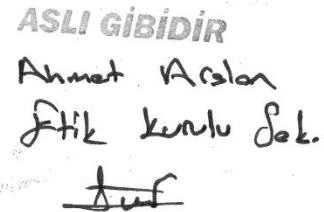 ASLI GİBİDİR
Ahmet Arslan
Etik Kurulu Sek.